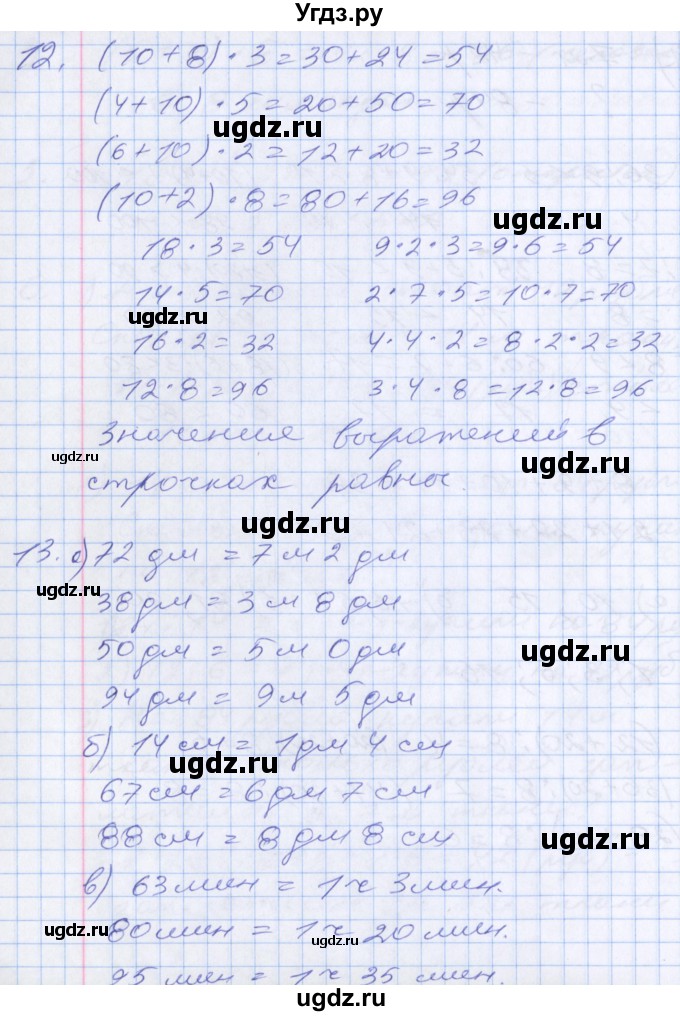 Угдз.ру
12. (10+8)·3=30+24=54
(4+10)·5=20+50=70
ugdz.ru
(6+10)·2=12+20=32
(10+2)·8=80+16=96
ugdz.ru
18·3=54 9·2·3=9·6=54
14·5=70 2·7·5=10·7=70
ugdz.ru
16·2=32 4·4·2=8·2·2=32
12·8=96 3·4·8=12·8=96
Значения выражений в
ugdz.ru ugdz.ru
строчках равны.
ugdz.ru
13. а) 72 дм = 7 м 2 дм
ugdz.ru
38 дм = 3 м 8 дм
50 дм = 5 м 0 дм
ugdz.ru
94 дм = 9 м 5 дм
б) 14 см = 1 дм 4 см
ugdz.ru
67 см = 6 дм 7 см
88 см = 8 дм 8 см
ugdz.ru
в) 63 мин = 1 ч 3 мин.
80 мин = 1 ч 20 мин.
ugdz.ru ugdz.ru
95 мин = 1 ч 35 мин.
ugdz.ru